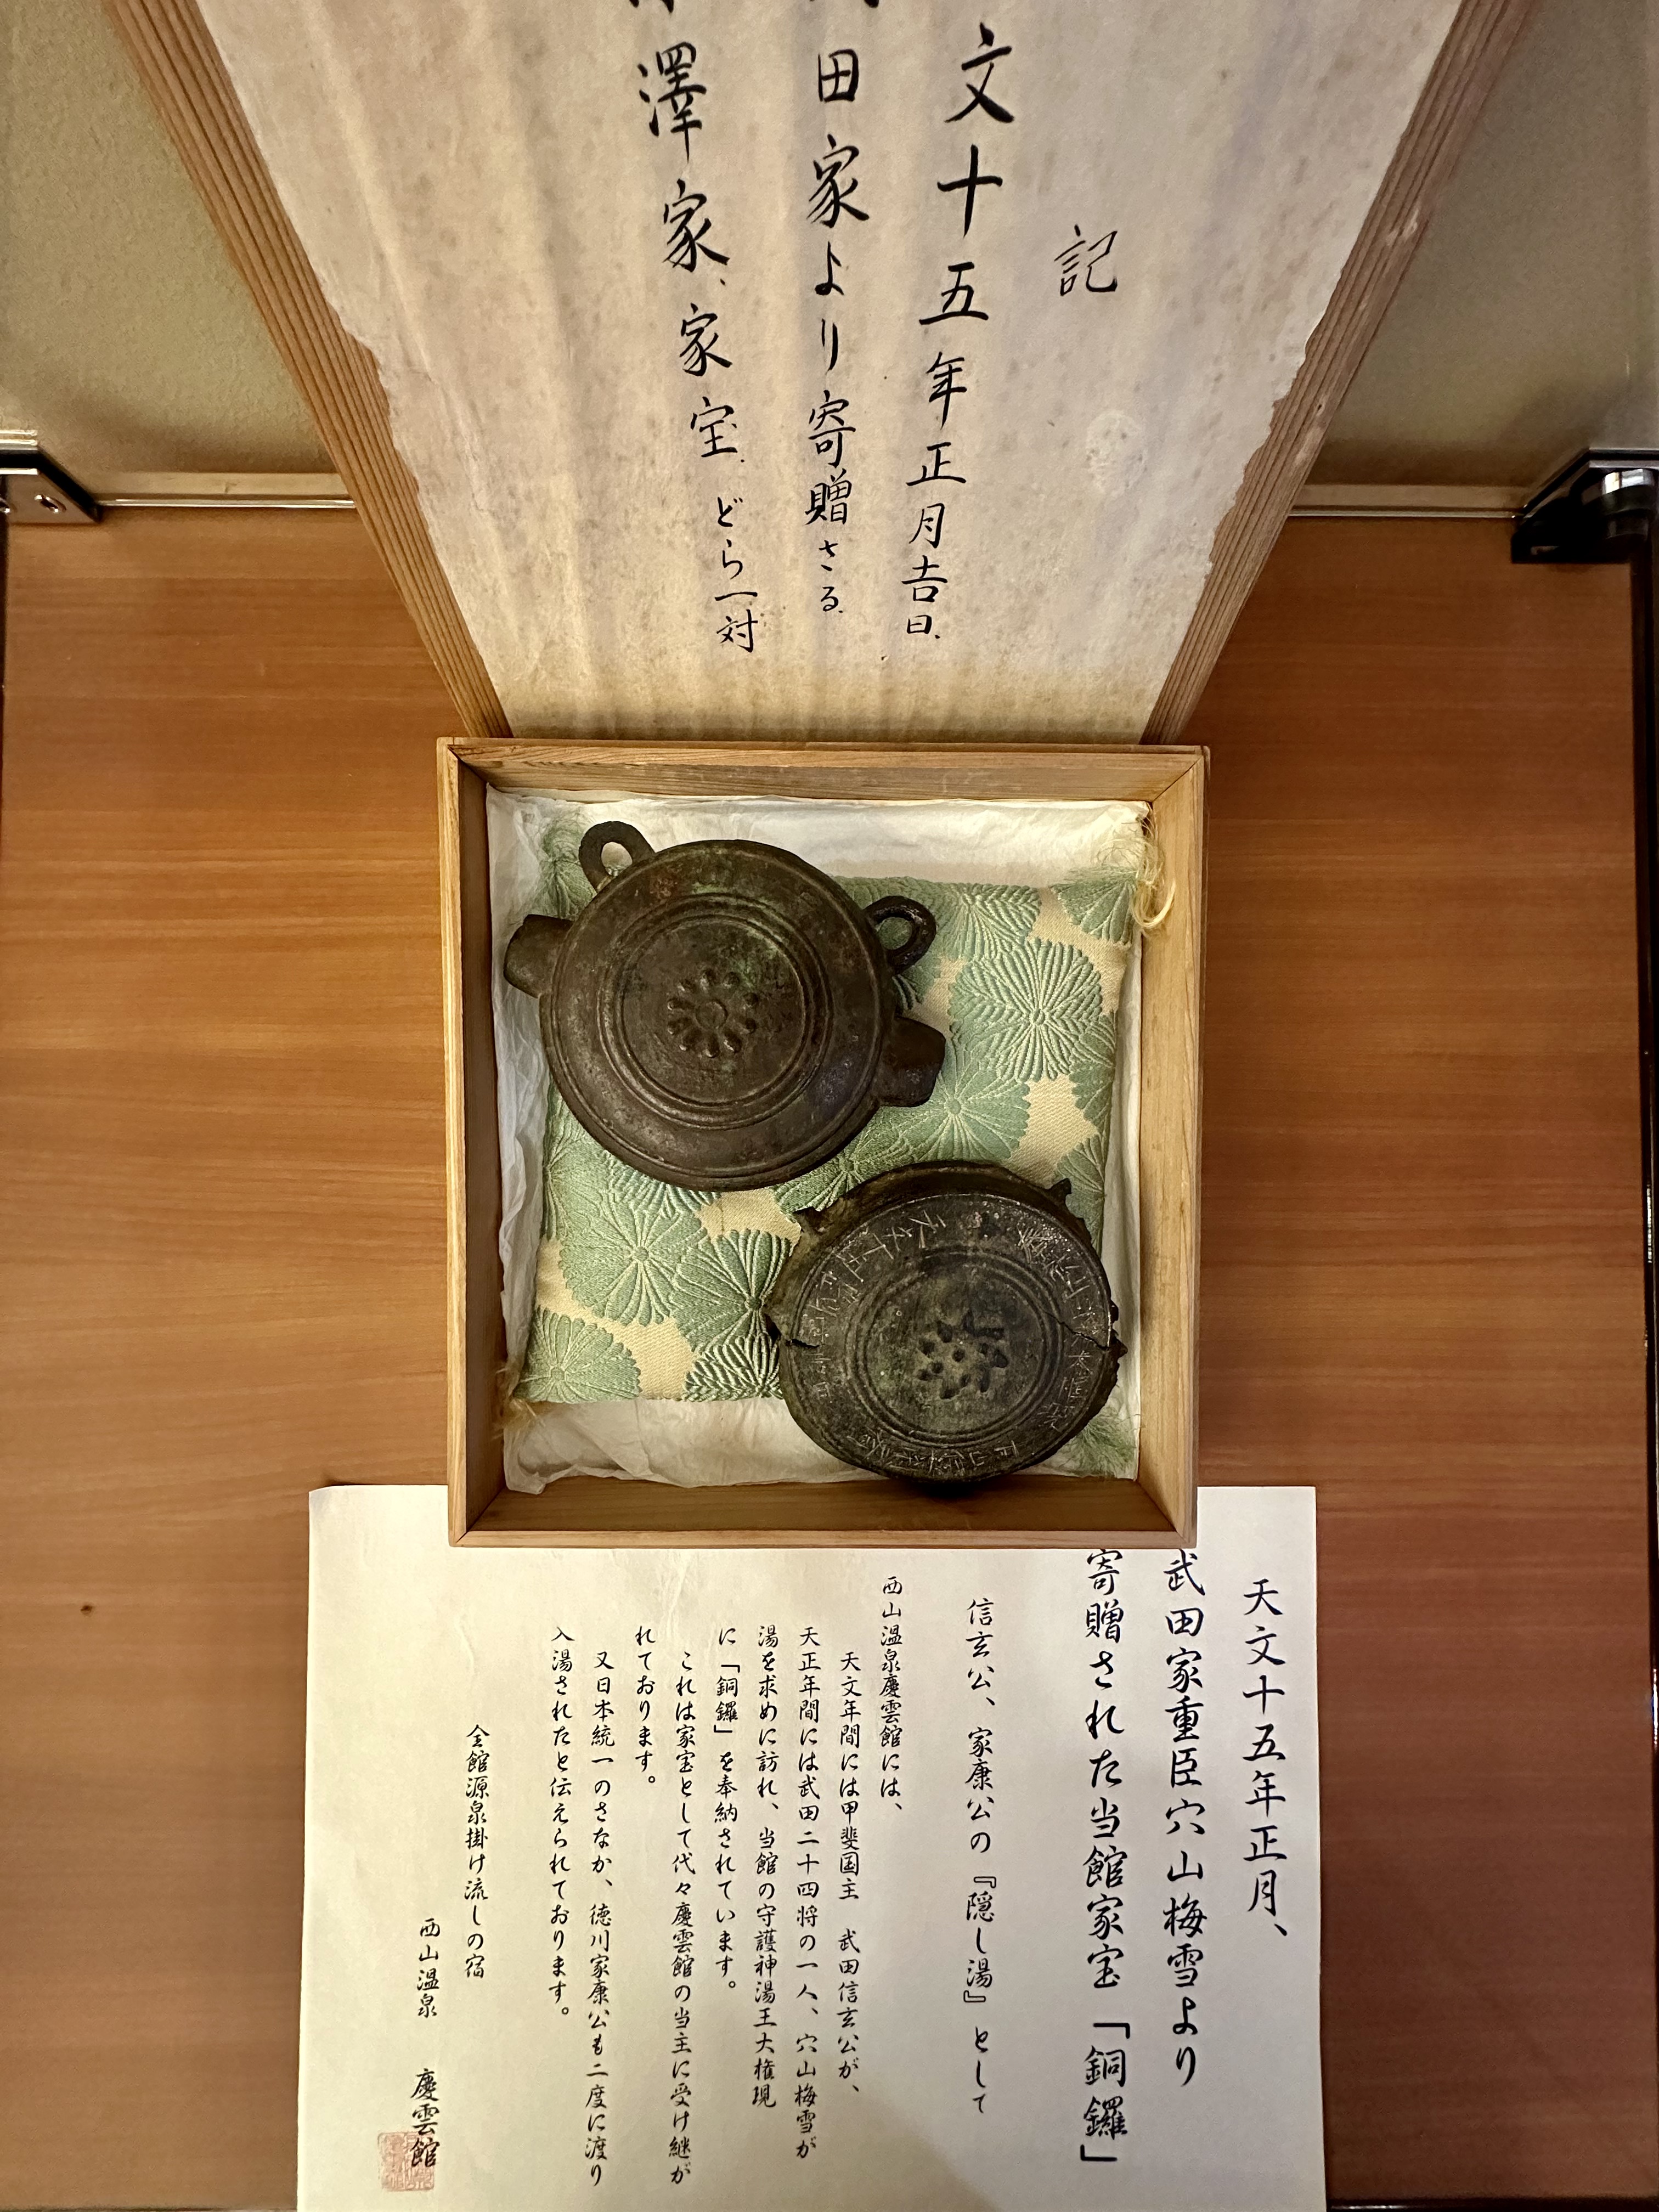 記
文十五年正月吉日.
田家より寄贈さる.
澤家、家宝.どら一対
天文十五年正月、
武田家重臣穴山梅雪より
寄贈された当館家宝「銅鑼」
信玄公、家康公の『隠し湯』として
西山温泉慶雲館には、
天文年間には甲斐国主 武田信玄公が、
天正年間には武田二十四将の一人、穴山梅雪が
湯を求めに訪れ、当館の守護神湯王大権現
に「銅鑼」を奉納されています。
これは家宝として代々慶雲館の当主に受け継が
れております。
又日本統一のさなか、徳川家康公も二度に渡り
入湯されたと伝えられております。
全館源泉掛け流しの宿
西山温泉 慶雲館